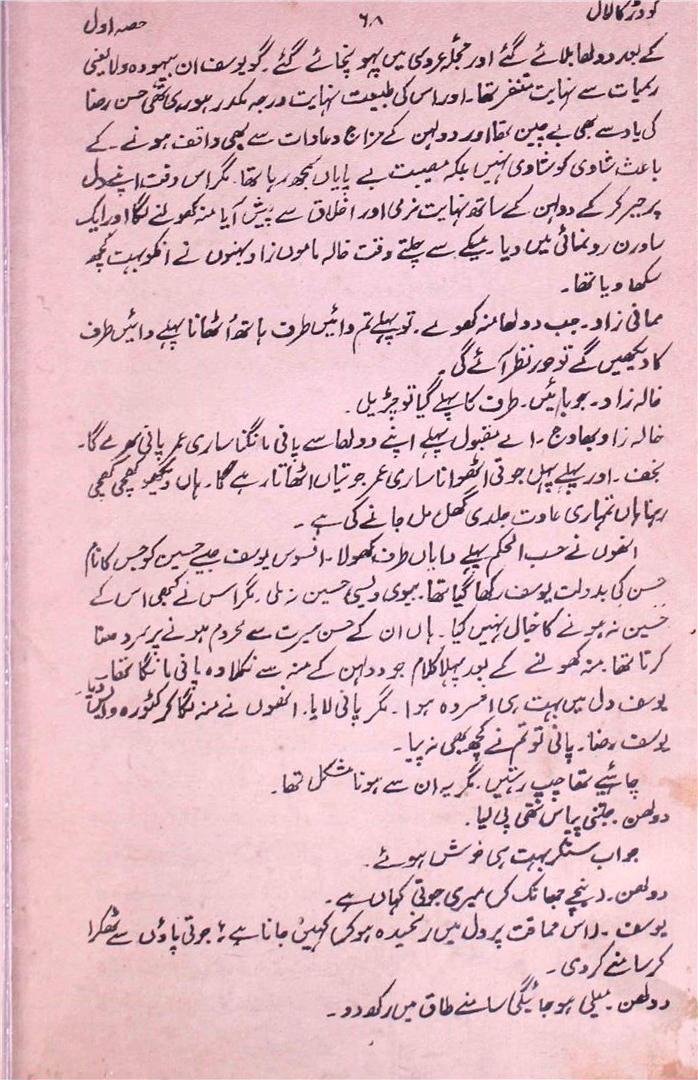 گودڑ کا لال ۶۸ حصہ اول
کے بعد دولھا بلائے گئے اور حجلہ عروسی میں پہونچائے گئے۔ گو یوسف ان بیہودہ و لایعنی
رسمیات سے نہایت متنفر تھا۔ اور اس کی طبیعت نہایت درجہ مکدر ہو رہی تھی حسن رضا
کی یاد سے بھی بے چین تھا اور دولہن کے مزاج و عادات سے بھی واقف ہونے۔ کے
باعث شادی کو شادی نہیں بلکہ مصیبت بے پایاں سمجھ رہا تھا۔ مگر اس وقت اپنے دل
پر جبر کر کے دولہن کے ساتھ نہایت نرمی اور اخلاق سے پیش آیا منہ کھولنے لگا اور ایک
ساورن رونمائی میں دیا۔ میکے سے چلتے وقت خالہ ماموں زاد بہنوں نے انکو بہت کچھ
سکھا دیا تھا۔
ممانی زاد۔ جب دولھا منہ کھولے۔ تو پہلے تم دائیں طرف ہاتھ اُٹھانا پہلے دائیں طرف
کا دیکھیں گے تو حور نظر آئے گی۔
خالہ زاد۔ جو بائیں۔ طرف کا پہلے گیا تو چڑیل۔
خالہ زاد بھاوج۔ اے مقبول پہلے اپنے دولھا سے پانی مانگنا ساری عمر پانی بھرے گا۔
نجف۔ اور پہلے پہل جوتی اٹھوانا ساری عمر جوتیاں اٹھاتا رہے گا۔ ہاں دیکھو کھچی کھچی
رہنا ہاں تمہاری عادت جلدی گھل مل جانے کی ہے۔
انھوں نے حسب الحکم پہلے دایاں طرف کھولا۔ افسوس یوسف جیسے حسین کو جس کا نام
حسن کی بدولت یوسف رکھا گیا تھا۔ بیوی ویسی حسین نہ ملی۔ مگر اس نے کبھی اس کے
حسین نہ ہونے کا خیال نہیں کیا۔ ہاں ان کے حسن سیرت سے محروم ہونے پر سرد ھنا
کرتا تھا۔ منہ کھولنے کے بعد پہلا کلام جو دولہن کے منہ سے نکلا وہ پانی مانگا تھا۔
یوسف دل میں بہت ہی افسردہ ہوا۔ مگر پانی لایا۔ انھوں نے منہ لگا کر کٹورہ واپس دیا۔
یوسف رضا۔ پانی تو تم نے کچھ بھی نہ پیا۔
چاہیے تھا چپ رہتیں۔ مگر یہ ان سے ہونا مشکل تھا۔
دولھن۔ جتنی پیاس تھی پی لیا۔
جواب سنکر بہت ہی خوش ہوئے۔
دولھن۔ (نیچے جھانک کر) میری جوتی کہاں ہے۔
یوسف۔ (اس حماقت پر دل میں رنجیدہ ہو کر) کہیں جانا ہے؟ جوتی پاؤں سے ٹھکرا
کر سامنے کر دی۔
دولھن۔ میلی ہو جائیگی سامنے طاق میں رکھ دو۔